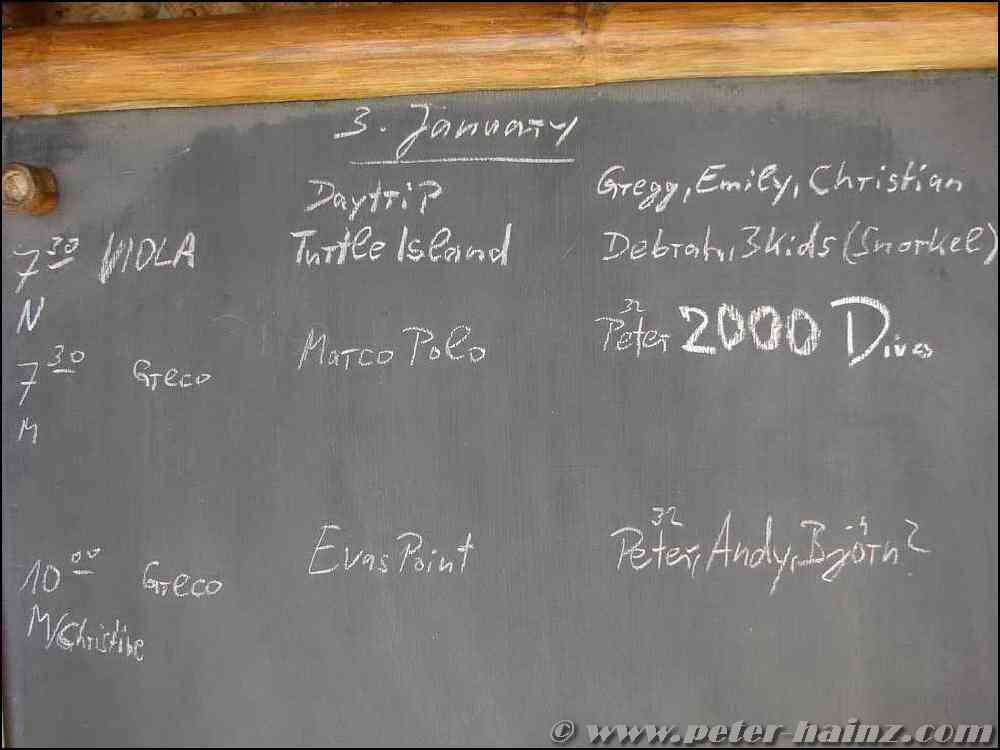 3. January
Daytrip Gregg, Emily, Christian
7 30 VIOLA Turtle Island Debrah, 3 Kids (Snorkel)
N
32
7 30 Greco Marco Polo Peter 2000 Dives
M
32
10 00 Greco Evas Point Peter, Andy, Björn?
M/Christine
© www.peter-hainz.com